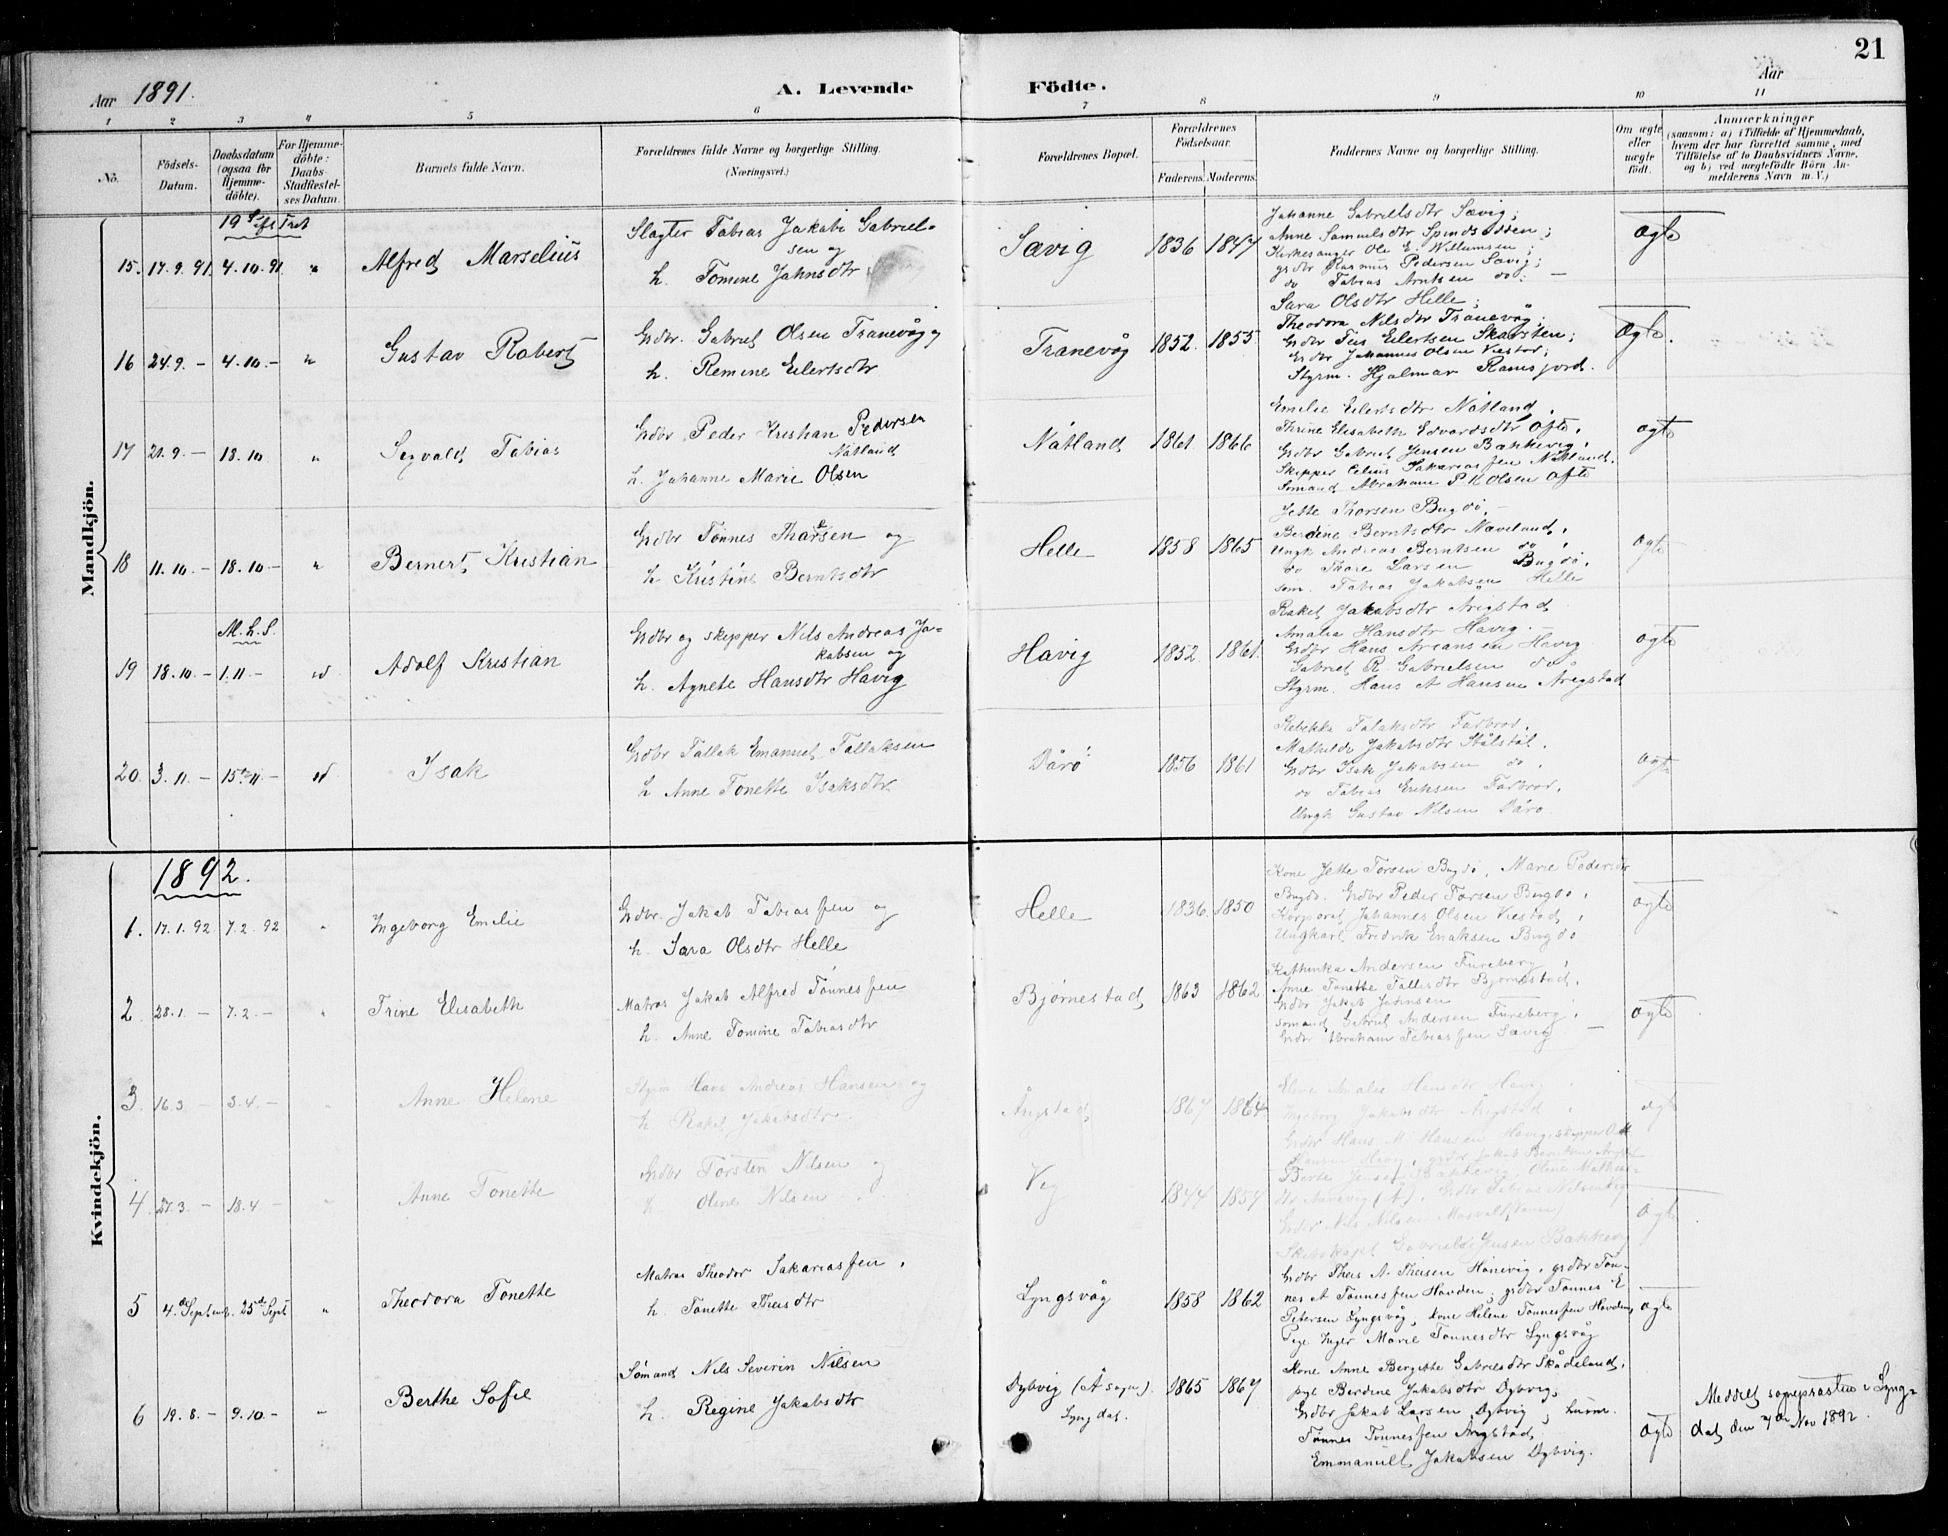 21
Aar 1891.
A. Levende Födte.
Aar
1 2 3 4 5 6 7 8 9 10 11
No.
Födsels-Datum.
Daabsdatum (ogsaa for Hjemme-döbte).
For Hjemme-döbte: Daabs-Stadfæstel-ses Datum.
Barnets fulde Navn.
Forældrenes fulde Navne og borgerlige Stilling. (Næringsvei.)
Forældrenes Bopæl.
Forældrenes Födselsaar.
Faderens. Moderens.
Faddernes Navne og borgerlige Stilling.
Om ægte eller uægte födt.
Anmærkninger
(saasom: a) i Tilfælde af Hjemmedaab, hvem der har forrettet samme, med Tilföielse af to Daabsvidners Navne, og b) ved uægtefödte Börn An-melderens Navn m. V.)
Mandkjön.
15. 17.9.91 4.10.91 " Alfred Marselius
Slagter Tobias Jakob Gabriel-
sen og
h. Tomine Jahnsdtr
Sævig 1836 1847
Johanne Gabrielsdtr Sævig;
Anne Samuelsdtr Spindsodden;
Kirkesanger Ole E. Willumsen;
gbr Rasmus Pedersen Sævig;
do Tobias Arntsen do. —
ægte
16 24.9. — 4.10. — " Gustav Robert
Gdbr. Gabriel Olsen Tranevåg og
h. Remine Eilertsdtr
Tranevåg 1852. 1855
Sara Olsdtr Helle;
Theodora Nilsdtr Tranevåg;
Gdbr Teis Eilertsen Skarsten;
Gdbr Johannes Olsen Viestad;
Styrm. Hjalmar Ramsfjord.
ægte.
17 21.9. — 18.10 " Segvald Tobias
Gdbr Peder Kristian Pedersen
Nåtland
h. Johanne Marie Olsen
Nåtland 1861. 1866
Emelie Eilertsdtr Nåtland,
Thrine Elisabeth Edvardsdtr Ofte,
Gdbr Gabriel Jensen Bækkevig,
Skipper Elius Sakariassen Nåtland.
Sømand Abraham P K Olsen Ofte
ægte
18 11.10. — 18.10 — " Bernert Kristian
Gdbr Tønnes Tharsen og
h Kristine Berntsdtr
Helle 1858 1865
Jette Thorsen Bugdø, —
Berdine Berntsdtr Næveland,
Ungk Andreas Berntsen do,
do Thore Larsen Bugdø,
søm. Tobias Jakobsen Helle
ægte
M.h.S.
19 18.10. — 1.11. — Adolf Kristian
Gdbr og skipper Nils Andreas Ja-
kobsen og
h. Agnete Hansdtr Håvig
Håvig 1852 1861.
Rakel Jakobsdtr Årigstad
Amalia Hansdtr Håvig. —
Gdbr Hans Areansen Håvig
Gabriel R. Gabrielsen do
Styrm. Hans A Hansen Årigstad
ægte
20. 3.11. — 15.11. — Isak
Gdbr Tallak Emanuel Tallaksen
h Anne Tonette Isaksdtr.
Dårø 1856 1861
Rebekka Talaksdtr Farbrod,
Mathilde Jakobsdtr Stålstøl,
Gdbr Isak Jakobsen do,
do Tobias Eriksen Farbrod,
Ungk Gustav Nilsen Dårø
ægte
Kvindekjön.
1892.
1. 17.1.92 7.2.92 " Ingeborg Emelie
Gdbr. Jakob Tobiassen og
h. Sara Olsdtr Helle
Helle 1836 1850
Kone Jette Torsen Bugdø, Marie Pedersdtr
Bugdø. Gdbr Peder Torsen Bugdø,
Korporal Johannes Olsen Viestad,
Ungkarl Fredrik Enoksen Bugdø
ægte
2 28.1. — 7.2. — " Trine Elisabeth
Matros Jakob Alfred Tønnessen
h. Anne Tomine Tobiasdtr
Bjørnestad 1863 1862
Kathinka Andersen Fureberg,
Anne Tonette Tallesdtr Bjørnestad,
Gdbr Jakob Jahnsen
Sømand Gabriel Andersen Fureberg,
Gdbr Abraham Tobiassen Sævig —
ægte
3 16.3 — 3.4. — " Anne Helene
Styrm Hans Andreas Hansen og
h. Rakel Jakobsdtr.
Årigstad 1867 1864
Amalie Hansdtr Håvig,
Ingeborg Jakobsdtr Årigstad,
Gdbr Hans M Hansen Håvig, skipper
Hansen Håvig, gdbr Jakob
ægte
4 27.3. — 18.4 — " Anne Tonette
Gdbr Torsten Nilsen og
h. Oline Nilsen
Veg 1844 1854
Berte Jensen Bækkevig Oline
Gdbr Tobias Nilsen
Gdbr Nils Nilsen
Gabrielle Jensen Bækkevig
ægte
5 4.de Septembr. 25.de Sept " Theodora Tonette
Matros Theodor Sakariassen,
h. Tonette Theisdtr
Lyngsvåg 1858 1862
Gdbr Theis A. Theisen Hønevig, gdbr Tøn-
nes A Tønnessen Hovden; gdbr Tønnes E
Petersen Lyngsvåg; kone Helene Tønnessen Hovden,
Pige Inger Marie Tønnesdtr Lyngsvåg
ægte
6 19.8. — 9.10. — " Berthe Sofie
Sømand Nils Severin Nilsen
h. Regine Jakobsdtr
Dybvig (Å sogn). Lyngdal. 1865 1867
Kone Anne Bergitte Gabrielsdtr Skådeland,
pige Berdine Jakobsdtr Dybvig;
Gdbr Jakob Larsen Dybvig; husm.
Tønnes Tønnessen Årigstad,
Emmanuel Jakobsen Dybvig.
ægte
Meddelt sognepræsten i Lyng-
dal den 7de Nov 1892.